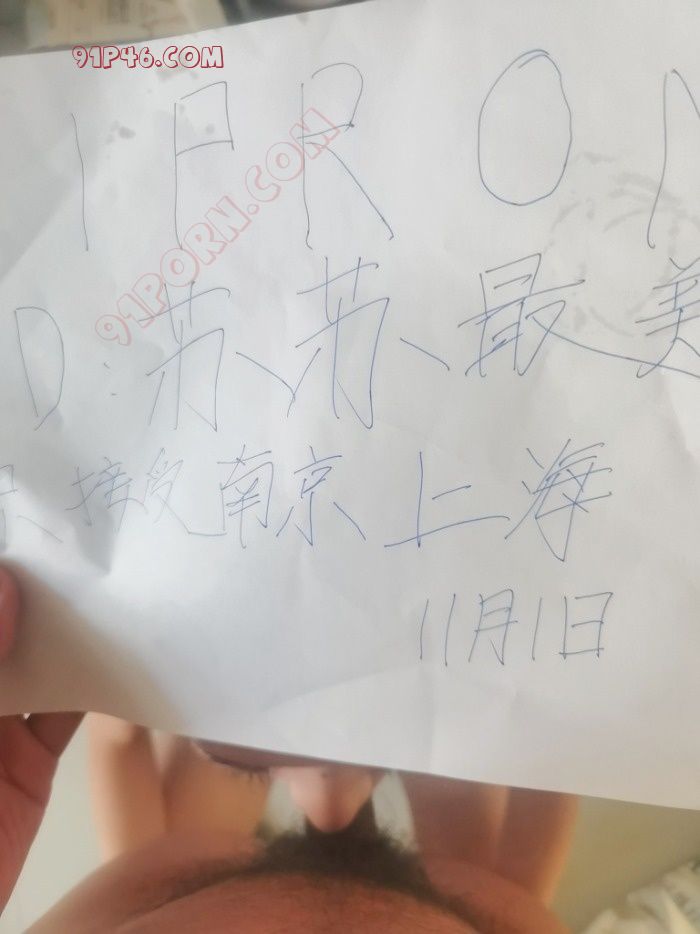 91P46.COM
91PORN.COM
1PRON
D:苏苏最美
接受南京上海
11月1日